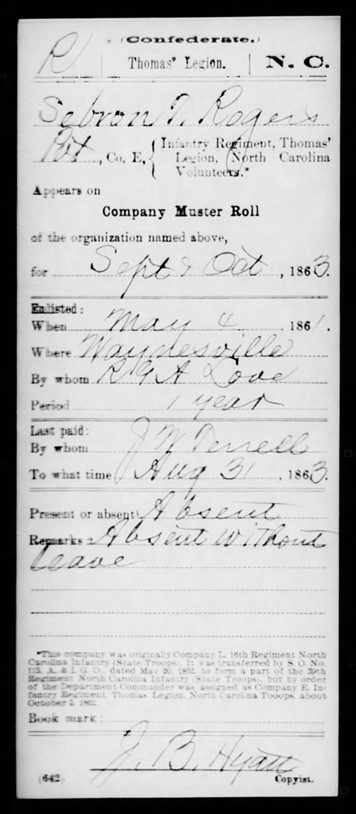 (Confederate.)
R | Thomas' Legion. | N. C.
Sebron T. Rogers
Pvt, Co. E, { Infantry Regiment, Thomas'
Legion, (North Carolina
Volunteers.*
Appears on
Company Muster Roll
of the organization named above,
for Sept & Oct, 1863.
Enlisted:
When May 4, 1861.
Where Waynesville
By whom R G A Love
Period 1 year
Last paid:
By whom J W Terrell
To what time Aug 31, 1863.
Present or absent Absent
Remarks: Absent without
leave
*This company was originally Company L, 16th Regiment North
Carolina Infantry (State Troops). It was transferred by S. O. No.
115, A. & I. G. O., dated May 20, 1862, to form a part of the 39th
Regiment North Carolina Infantry (State Troops), but by order
of the Department Commander was assigned as Company E, In-
fantry Regiment, Thomas Legion, North Carolina Troops, about
October 2, 1862.
Book mark:
J. B. Hyatt
(642) Copyist.